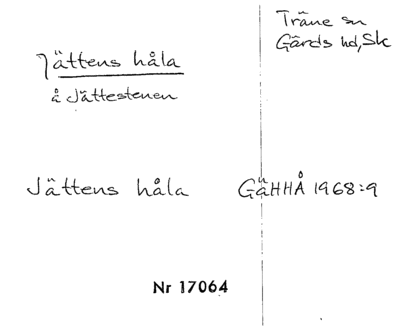 Träne sn
Gärds hd, Sk
Jättens håla
å Jättestenen
Jättens håla GäHHÅ 1968:9
Nr 17064